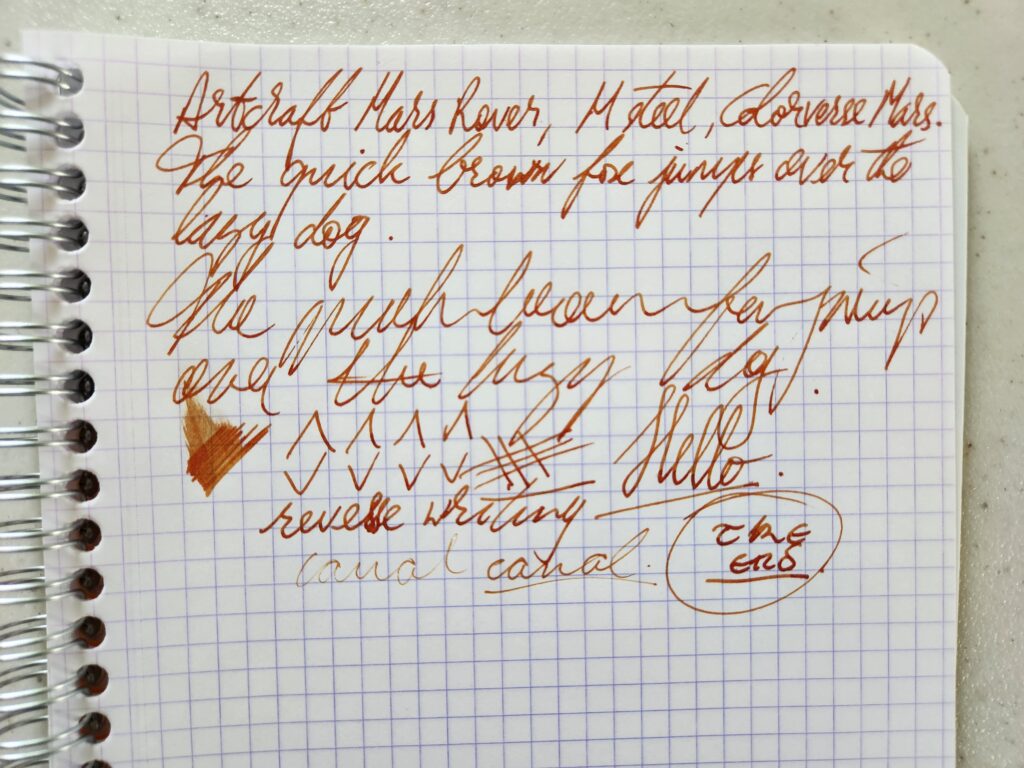 Artcraft Mars Rover, M steel, Colorverse Mars.
The quick brown fox jumps over the
lazy dog.
The quick brown fox jumps
over the lazy dog.
Hello.
reverse writing
canal canal.
THE
END